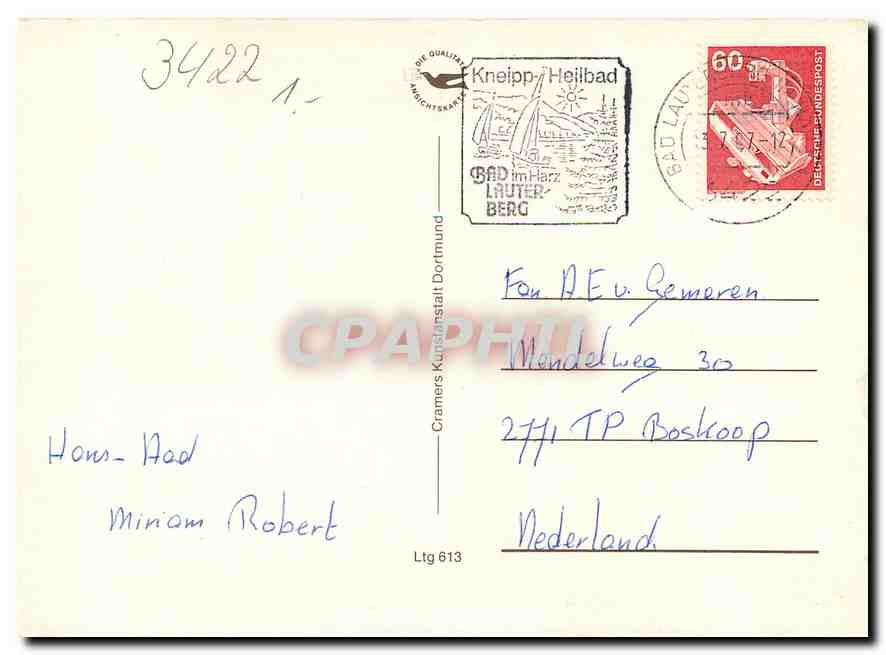 3422
1.-
DIE QUALITÄTS
ANSICHTSKARTE
Kneipp-Heilbad
BAD im Harz
LAUTER-
BERG
60
DEUTSCHE BUNDESPOST
BAD LAUTERBERG
Cramers Kunstanstalt Dortmund
CPAPHIL
Fam. A.E v. Gemeren
Mendelweg 30
2771 TP Boskoop
Nederland.
Hans-Aad
Miriam Robert
Ltg 613